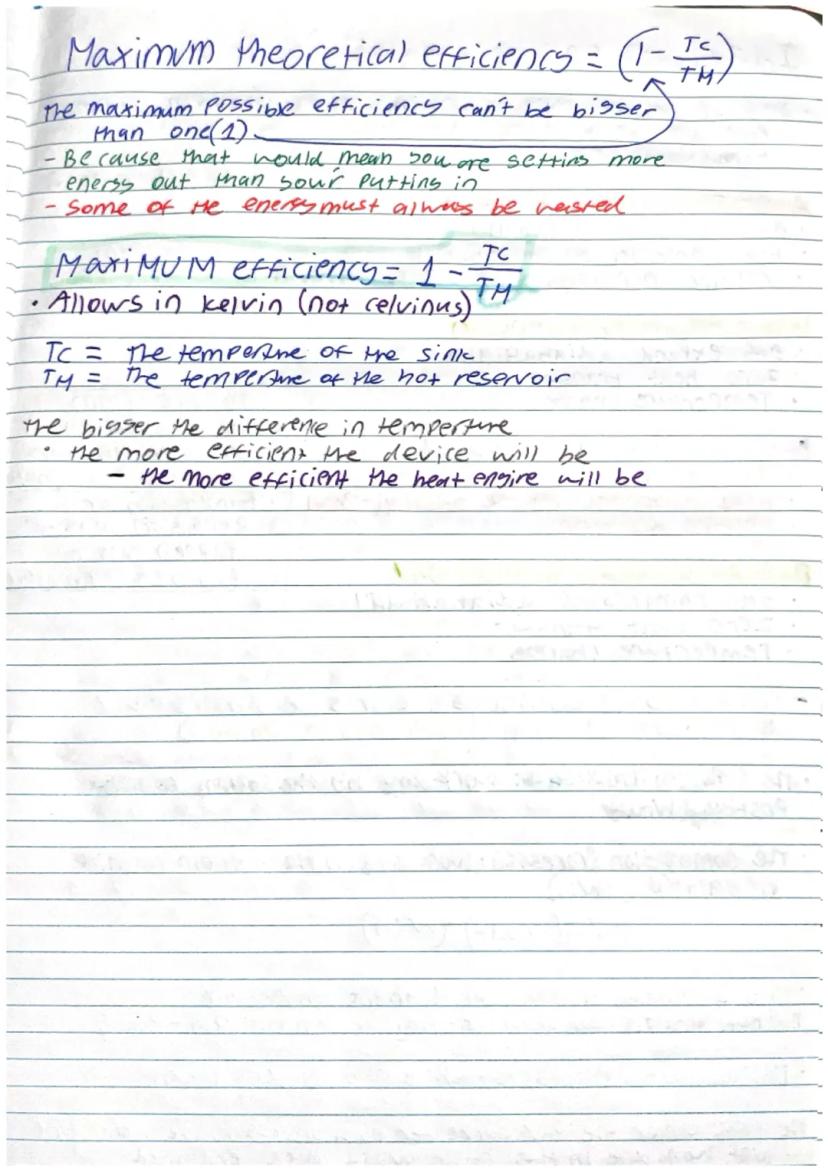 Maximum theoretical efficiency = (1 - TC/TM)
the maximum possible efficiency can't be bigger
than one(1)
- Because that would mean you are getting more
energy out than your putting in
- Some of the energy must always be wasted
MaxiMUM efficiency = 1 - TC/TM
• Allows in kelvin (not celvinus)
TC = The temperture of the sink
TM = the temperture of the hot reservoir
the bigger the difference in temperture
• the more efficient the device will be
- the more efficient the heat engire will be